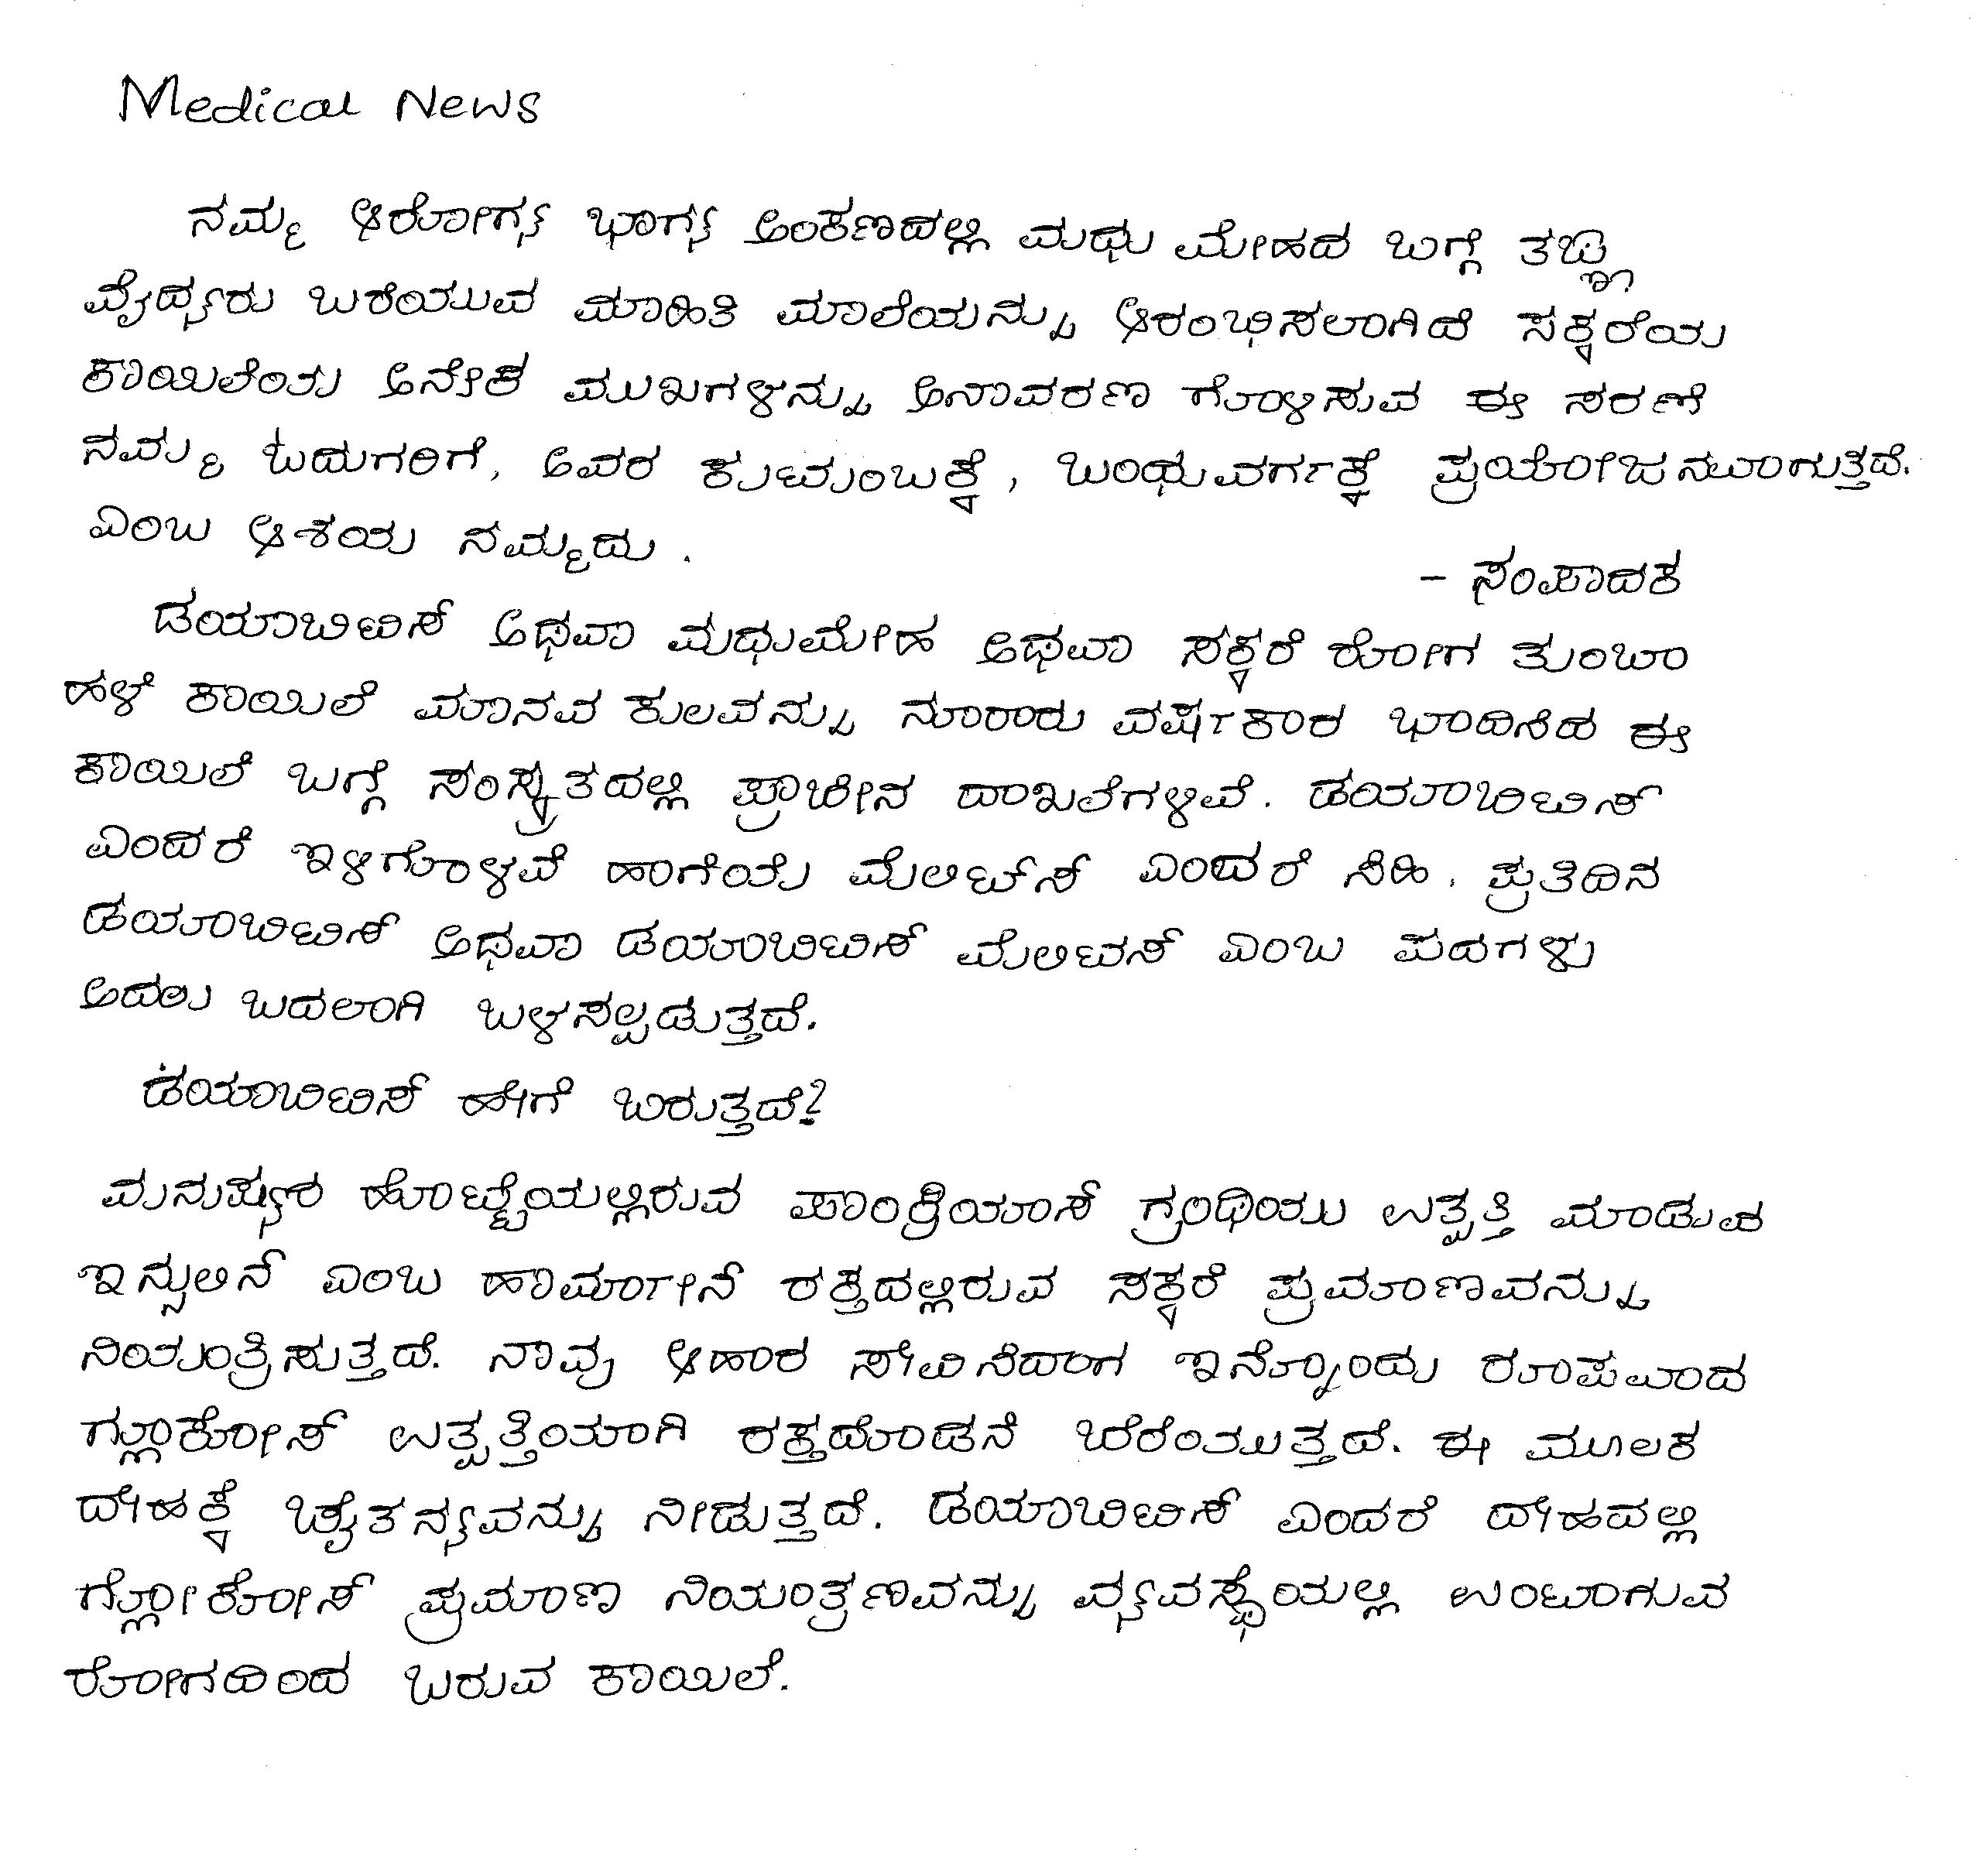 Medical News
ನಮ್ಮ ಆರೋಗ್ಯ ಭಾಗ್ಯ ಅಂಕಣದಲ್ಲಿ ಮಧು ಮೇಹದ ಬಗ್ಗೆ ತಜ್ಞ
ವೈದ್ಯರು ಬರೆಯುವ ಮಾಹಿತಿ ಮಾಲೆಯನ್ನು ಆರಂಭಿಸಲಾಗಿದೆ ಸಕ್ಕರೆಯ
ಕಾಯಿಲೆಯ ಅನೇಕ ಮುಖಗಳನ್ನು ಅನಾವರಣ ಗೊಳಿಸುವ ಈ ಸರಣಿ
ನಮ್ಮ ಓದುಗರಿಗೆ, ಅವರ ಕುಟುಂಬಕ್ಕೆ, ಬಂಧುವರ್ಗಕ್ಕೆ ಪ್ರಯೋಜನವಾಗುತ್ತಿದೆ.
ಎಂಬ ಆಶಯ ನಮ್ಮದು.
- ಸಂಪಾದಕ
ಡಯಾಬಿಟಿಸ್ ಅಥವಾ ಮಧುಮೇಹ ಅಥವಾ ಸಕ್ಕರೆ ರೋಗ ತುಂಬಾ
ಹಳೆ ಕಾಯಿಲೆ ಮಾನವ ಕುಲವನ್ನು ನೂರಾರು ವರ್ಷಕಾಲ ಭಾದಿಸಿಹ ಈ
ಕಾಯಿಲೆ ಬಗ್ಗೆ ಸಂಸ್ಕೃತದಲ್ಲಿ ಪ್ರಾಚೀನ ದಾಖಲೆಗಳಿವೆ. ಡಯಾಬಿಟಿಸ್
ಎಂದರೆ ಇಳಿಗೊಳವೆ ಹಾಗೆಯೆ ಮೆಲಿಟ್ಸ್ ಎಂದರೆ ಸಿಹಿ. ಪ್ರತಿದಿನ
ಡಯಾಬಿಟಿಸ್ ಅಥವಾ ಡಯಾಬಿಟಿಸ್ ಮೆಲಿಟಸ್ ಎಂಬ ಪದಗಳು
ಅದಲು ಬದಲಾಗಿ ಬಳಸಲ್ಪಡುತ್ತದೆ.
ಡಯಾಬಿಟಿಸ್ ಹೇಗೆ ಬರುತ್ತದೆ?
ಮನುಷ್ಯರ ಹೊಟ್ಟೆಯಲ್ಲಿರುವ ಪಾಂಕ್ರಿಯಾಸ್ ಗ್ರಂಥಿಯು ಉತ್ಪತ್ತಿ ಮಾಡುವ
ಇನ್ಸುಲಿನ್ ಎಂಬ ಹಾರ್ಮೋನ್ ರಕ್ತದಲ್ಲಿರುವ ಸಕ್ಕರೆ ಪ್ರಮಾಣವನ್ನು
ನಿಯಂತ್ರಿಸುತ್ತದೆ. ನಾವು ಆಹಾರ ಸೇವಿಸಿದಾಗ ಇನ್ನೊಂದು ರೂಪವಾದ
ಗ್ಲೂಕೋಸ್ ಉತ್ಪತ್ತಿಯಾಗಿ ರಕ್ತದೊಡನೆ ಬೆರೆಯುತ್ತದೆ. ಈ ಮೂಲಕ
ದೇಹಕ್ಕೆ ಚೈತನ್ಯವನ್ನು ನೀಡುತ್ತದೆ. ಡಯಾಬಿಟಿಸ್ ಎಂದರೆ ದೇಹದಲ್ಲಿ
ಗ್ಲೋಕೋಸ್ ಪ್ರಮಾಣ ನಿಯಂತ್ರಣವನ್ನು ವ್ಯವಸ್ಥೆಯಲ್ಲಿ ಉಂಟಾಗುವ
ರೋಗದಿಂದ ಬರುವ ಕಾಯಿಲೆ.